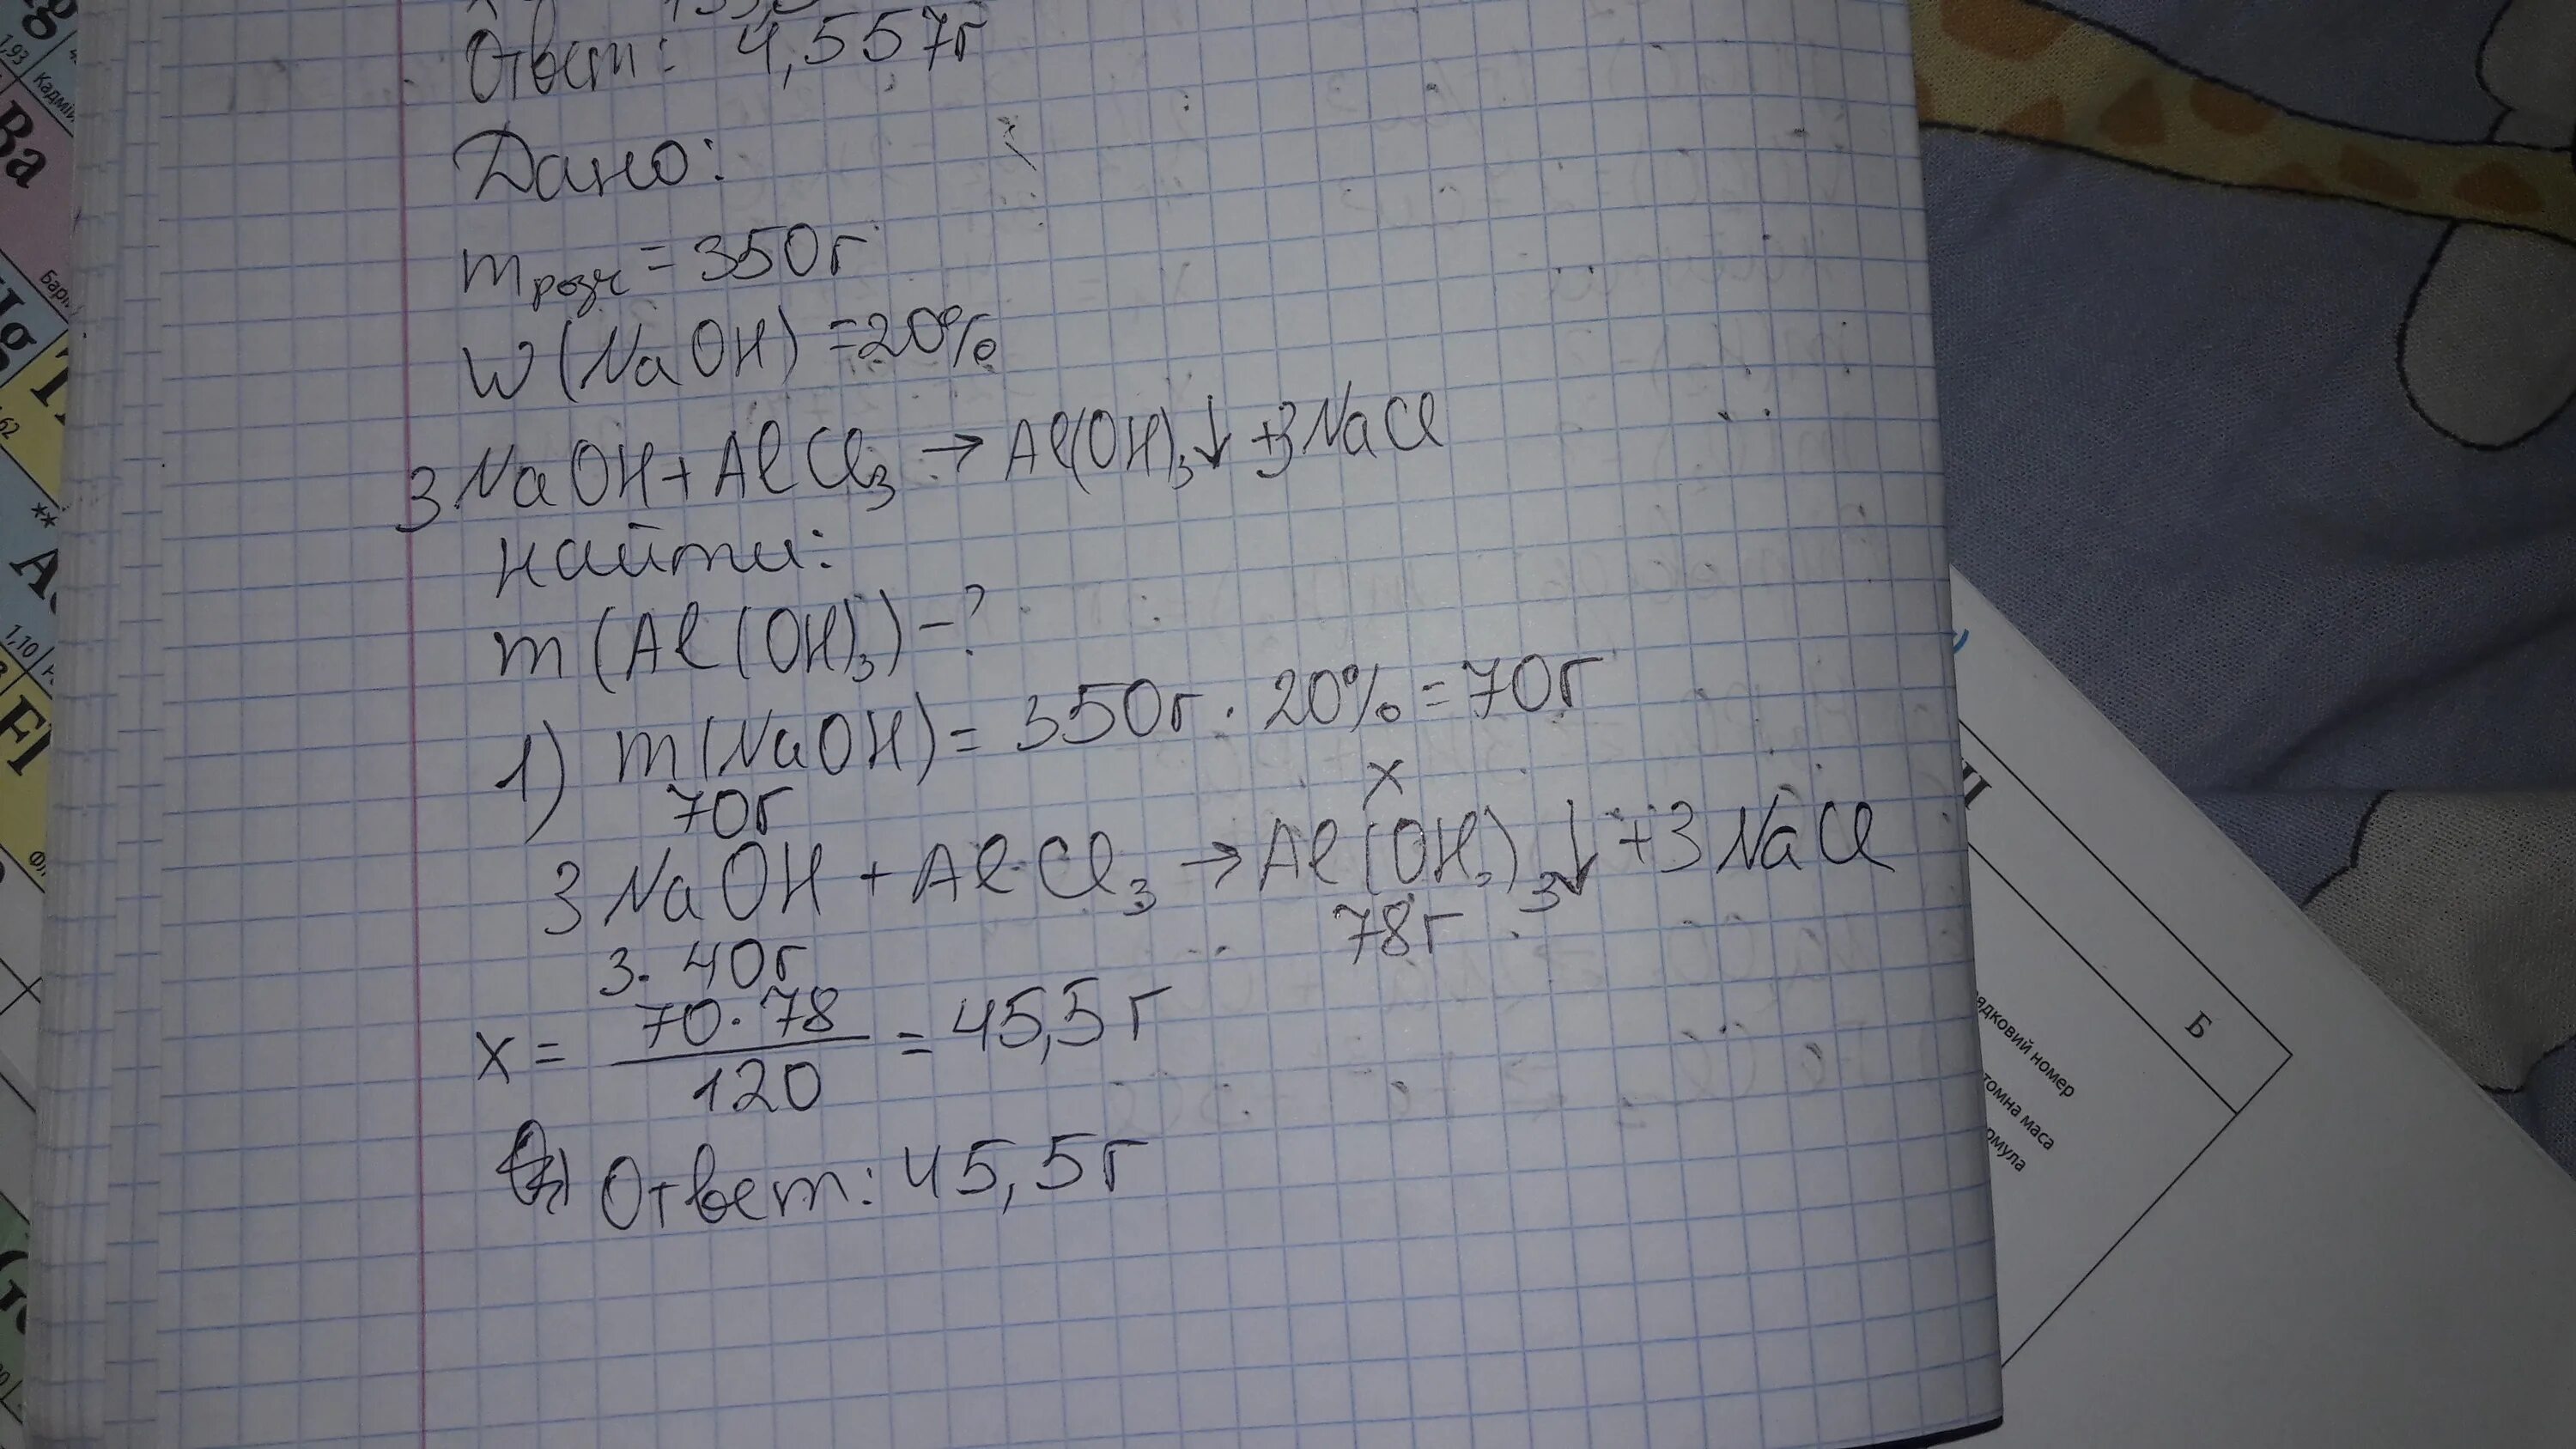 Ответ: 4,557г
Дано:
mрозч = 350г
W(NaOH) = 20%
3NaOH + AlCl3 → Al(OH)3↓ + 3NaCl
найти:
m(Al(OH)3) - ?
1) m(NaOH) = 350г · 20% = 70г
70г x
3NaOH + AlCl3 → Al(OH)3↓ + 3NaCl
3 · 40г 78г
x = 70·78/120 = 45,5г
Ответ: 45,5г
Кадмій
1,93
Ba
Барі
Hg
62
**
1,10
Fl
Б
ядковий номер
томна маса
рмула